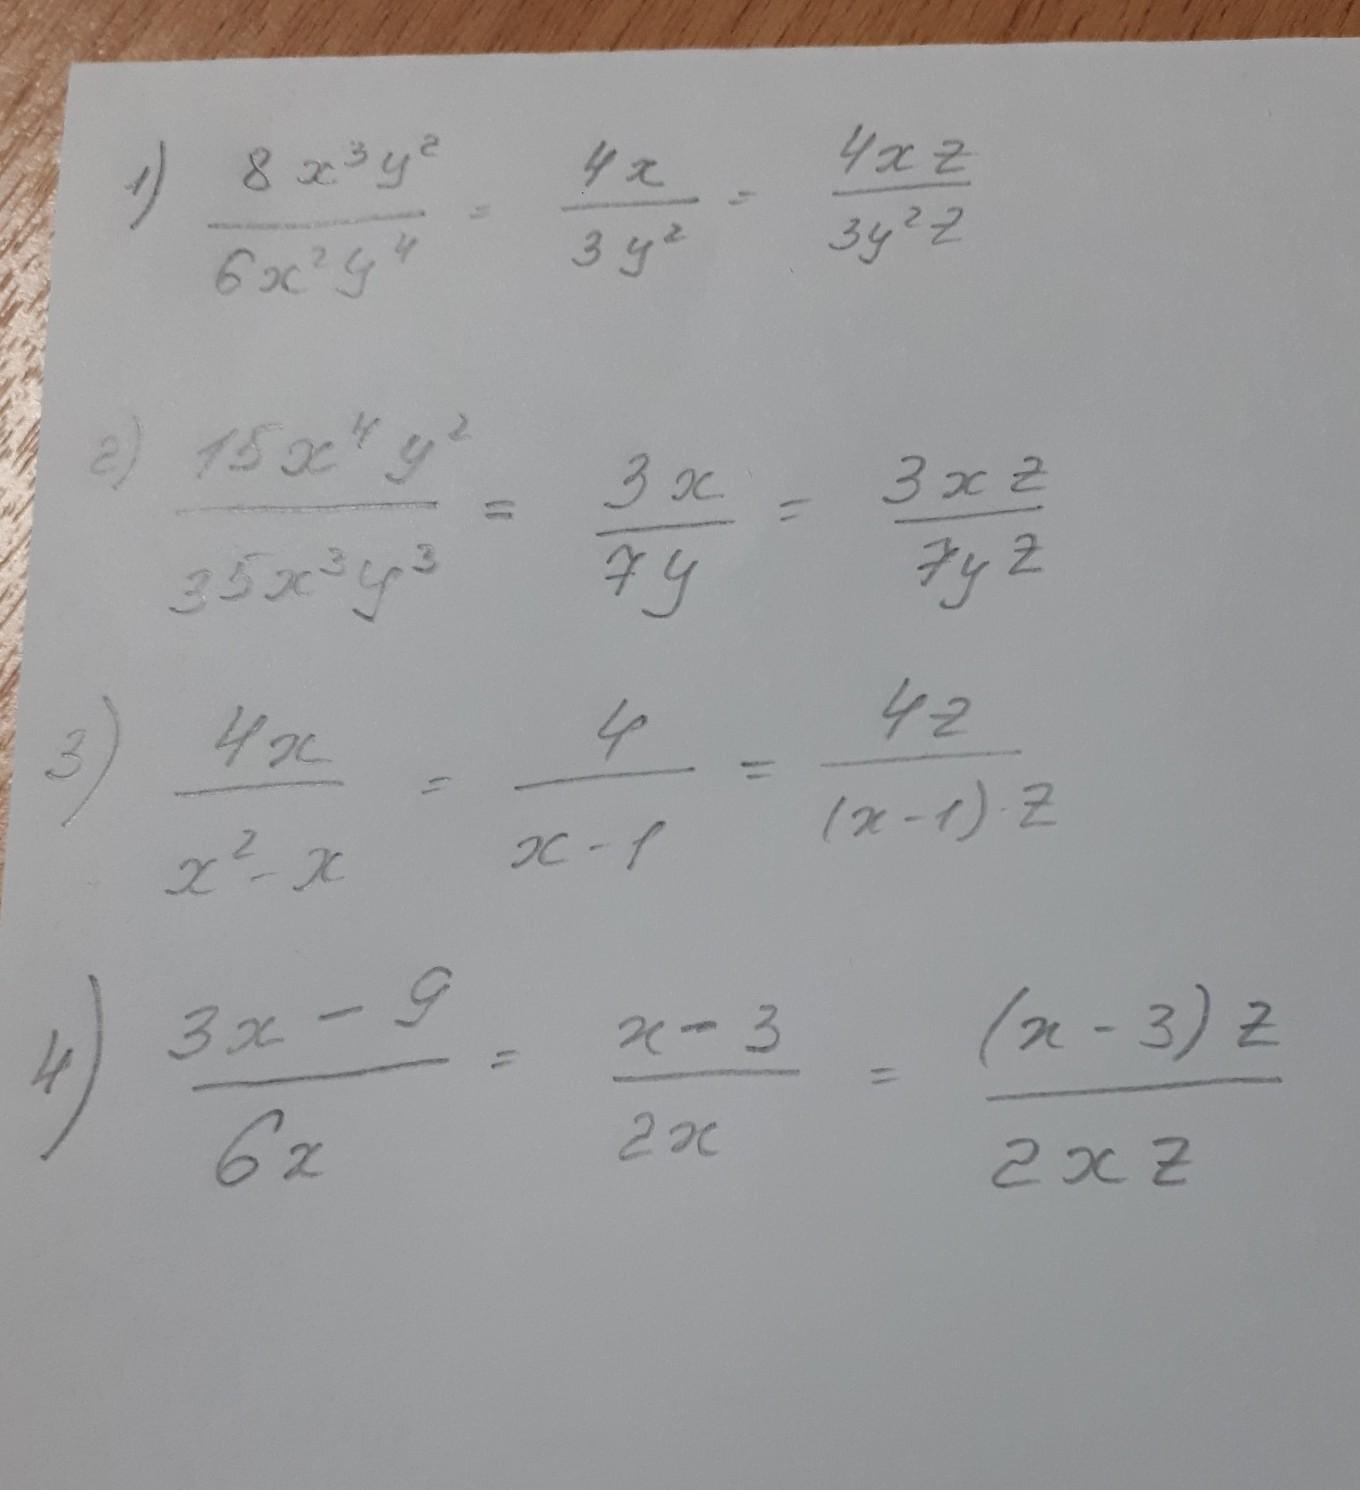 1) 8x³y² / 6x²y⁴ = 4x / 3y² = 4xz / 3y²z
2) 15x⁴y² / 35x³y³ = 3x / 7y = 3xz / 7yz
3) 4x / x²-x = 4 / x-1 = 4z / (x-1)·z
4) 3x-9 / 6x = x-3 / 2x = (x-3)z / 2xz